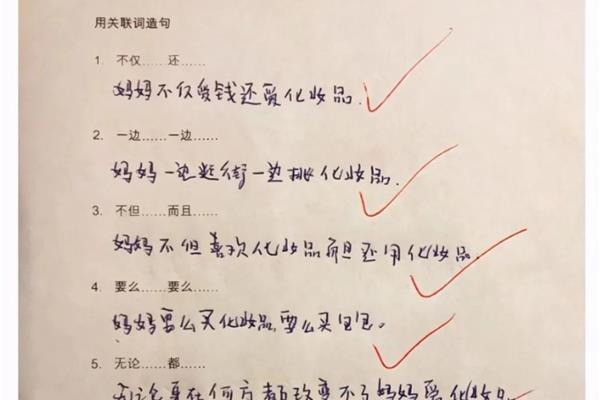 用关联词造句
1. 不仅……还……
妈妈不仅爱钱还爱化妆品.
2. 一边……一边……
妈妈一边逛街一边挑化妆品.
3. 不但……而且……
妈妈不但喜欢化妆品而且还用化妆品.
4. 要么……要么……
妈妈要么买化妆品,要么买包包。
5. 无论……都……
无论身在何方都改变不了妈妈爱化妆品.